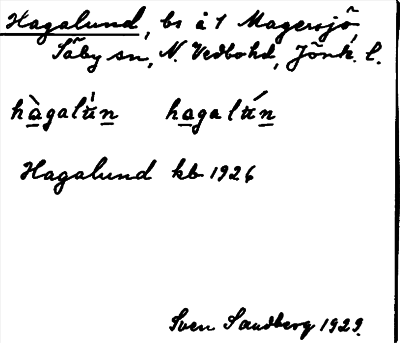 Hagalund, bs å 1 Magersjö,
Säby sn, N. Vedbohd, Jönk. l.
hàgalu̇n hagalún
Hagalund kb 1926
Sven Sandberg 1929.